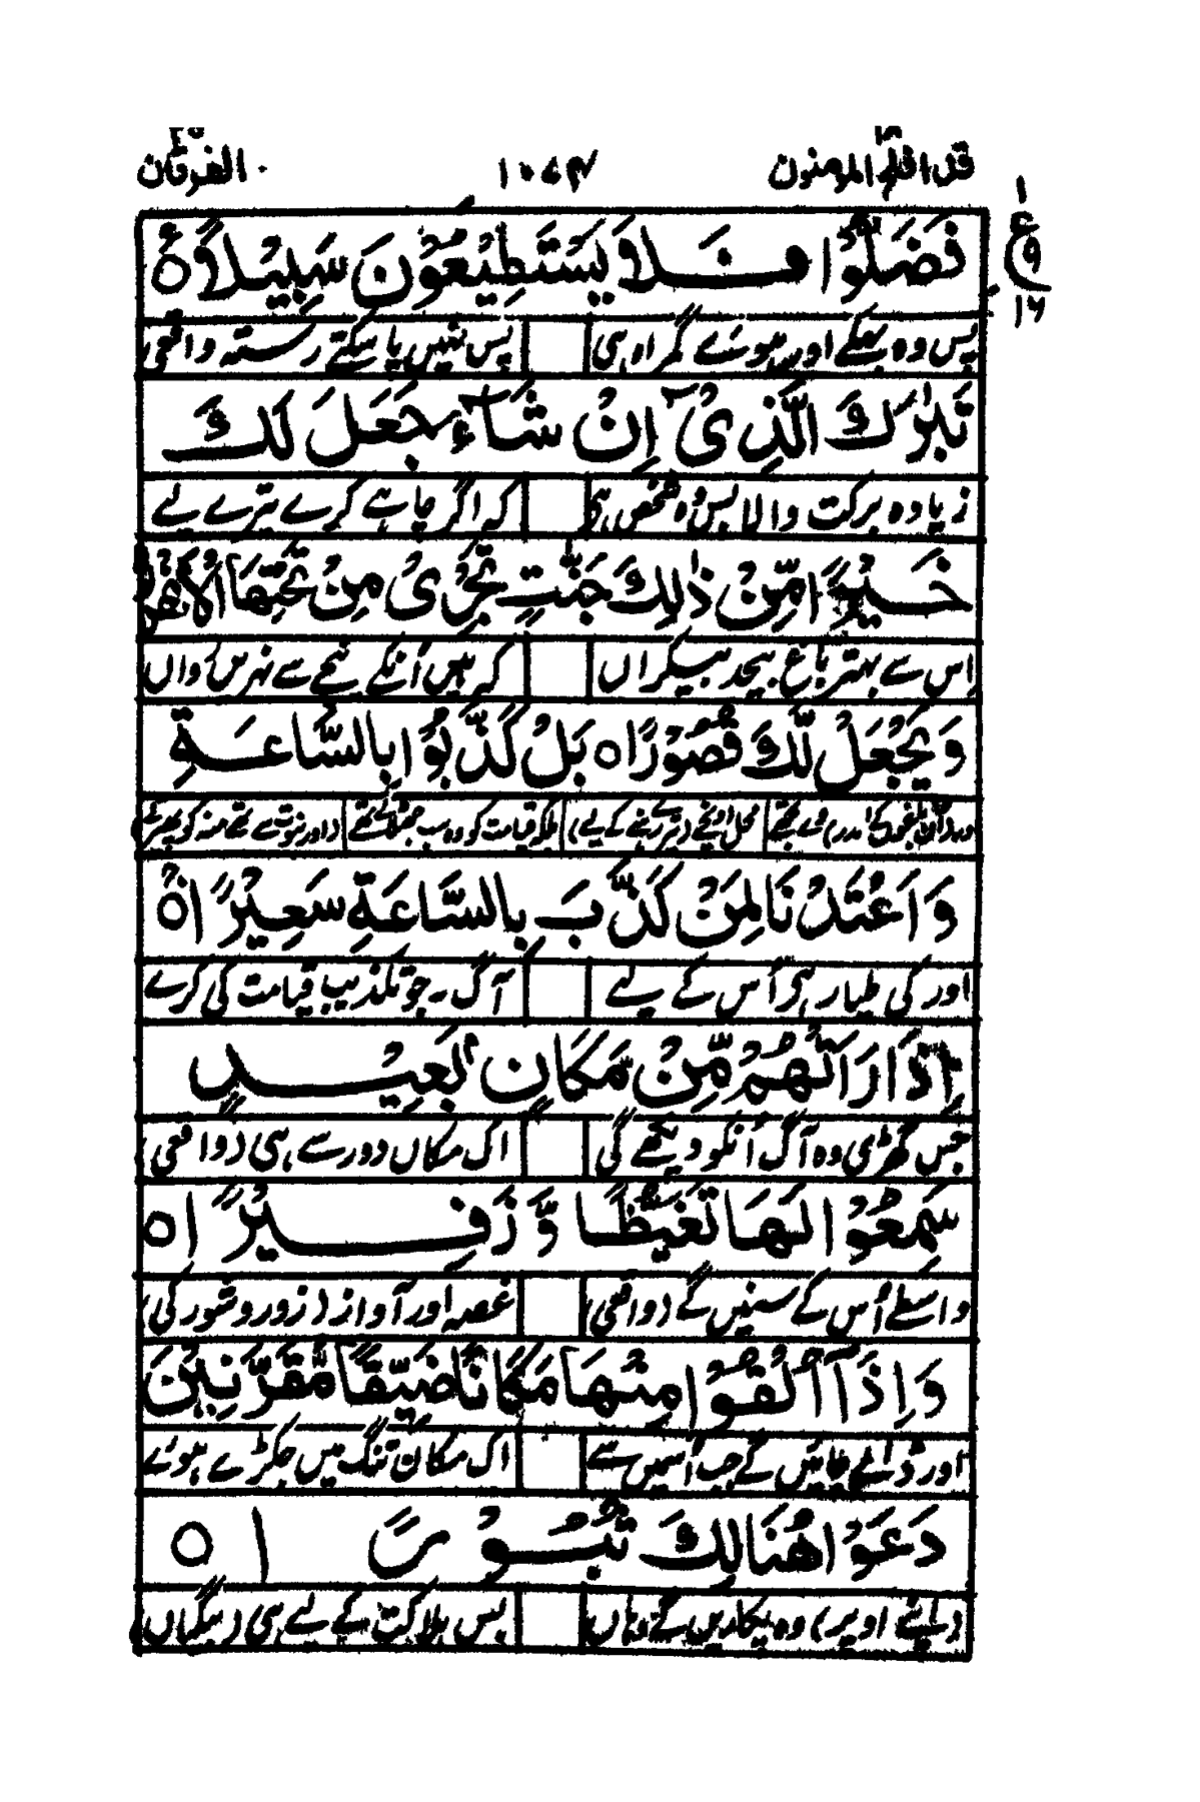 قد افلح المؤمنون ۱۸
۱۰۷۴
الفرقان ۲۵
فَضَلُّوْا فَلَا يَسْتَطِيْعُوْنَ سَبِيْلًا ۝
پس وہ بھٹکے اور ہوئے گمراہ ہی پس نہیں پا سکتے رستہ واقعی
تَبٰرَكَ الَّذِىْٓ اِنْ شَآءَ جَعَلَ لَكَ
زیادہ برکت والا بس وہ شخص ہی کہ اگر چاہے کرے تیرے لیے
خَيْرًا مِّنْ ذٰلِكَ جَنّٰتٍ تَجْرِىْ مِنْ تَحْتِهَا الْاَنْهٰرُ
اس سے بہتر باغ بیحد بیکراں کہ ہیں اُنکے نیچے سے نہریں رواں
وَيَجْعَلْ لَّكَ قُصُوْرًا ۝ بَلْ كَذَّبُوْا بِالسَّاعَةِ
محل اونچے (تیرے رہنے کے لیے) بلکہ قیامت کو وہ سب جھٹلاتے تھے
وَاَعْتَدْنَا لِمَنْ كَذَّبَ بِالسَّاعَةِ سَعِيْرًا ۝
اور کی طیار ہی اُس کے لیے آگ۔ جو تکذیب قیامت کی کرے
اِذَا رَاَتْهُمْ مِّنْ مَّكَانٍ بَعِيْدٍ
جس گھڑی وہ آگ اُنکو دیکھے گی اک مکاں دور سے ہی (واقعی)
سَمِعُوْا لَهَا تَغَيُّظًا وَّزَفِيْرًا ۝
واسطے اُس کے سنیں گے (واقعی) غصہ اور آواز (زور و شور کی)
وَاِذَآ اُلْقُوْا مِنْهَا مَكَانًا ضَيِّقًا مُّقَرَّنِيْنَ
اور ڈالے جائیں گے جب اُسمیں سے اک مکان تنگ میں جکڑے ہوئے
دَعَوْا هُنَالِكَ ثُبُوْرًا ۝
(اپنے اوپر) وہ پکاریں گے وہاں بس ہلاکت کے لیے ہی (بیگماں)